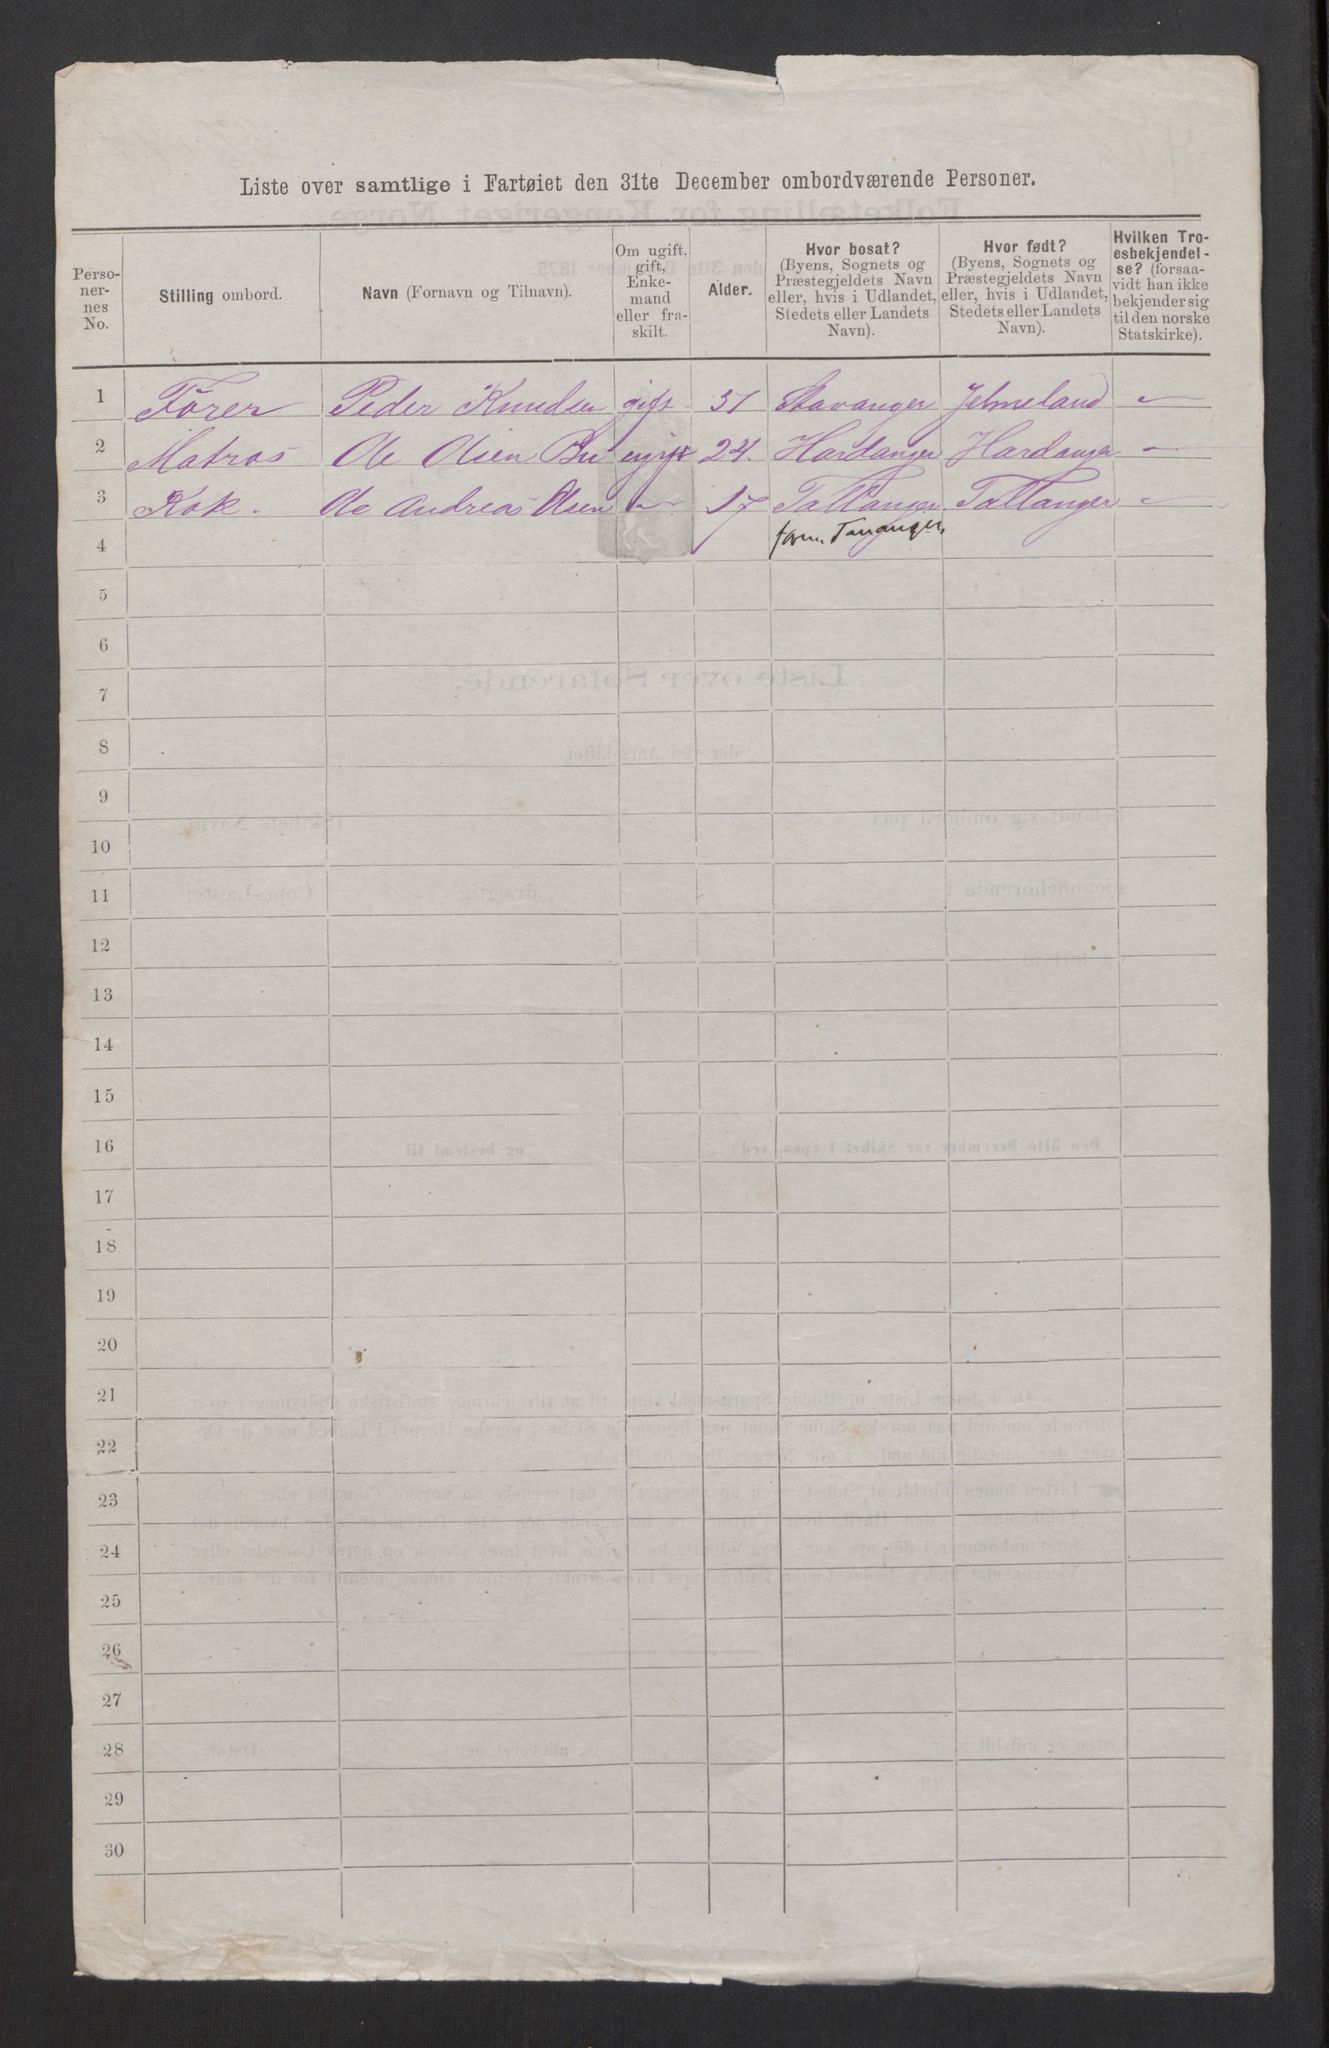 Liste over samtlige i Fartøiet den 31te December ombordværende Personer.
Perso-
ner-
nes
No.
Stilling ombord.
Navn (Fornavn og Tilnavn).
Om ugift,
gift,
Enke-
mand
eller fra-
skilt.
Alder.
Hvor bosat?
(Byens, Sognets og
Præstegjeldets Navn
eller, hvis i Udlandet,
Stedets eller Landets
Navn).
Hvor født?
(Byens, Sognets og
Præstegjeldets Navn
eller, hvis i Udlandet,
Stedets eller Landets
Navn).
Hvilken Tro-
esbekjendel-
se? (forsaa-
vidt han ikke
bekjender sig
til den norske
Statskirke).
1 Förer Peder Knudsen gift 31 Stavanger Jelmeland -
2 Matros Ole Olsen Bu ugift 24. Hardanger Hardanger -
3 Kok. Ole Andreas Olsen - 17 Tallanger Tallanger -
Tananger,
4
5
6
7
8
9
10
11
12
13
14
15
16
17
18
19
20
21
22
23
24
25
26
27
28
29
30